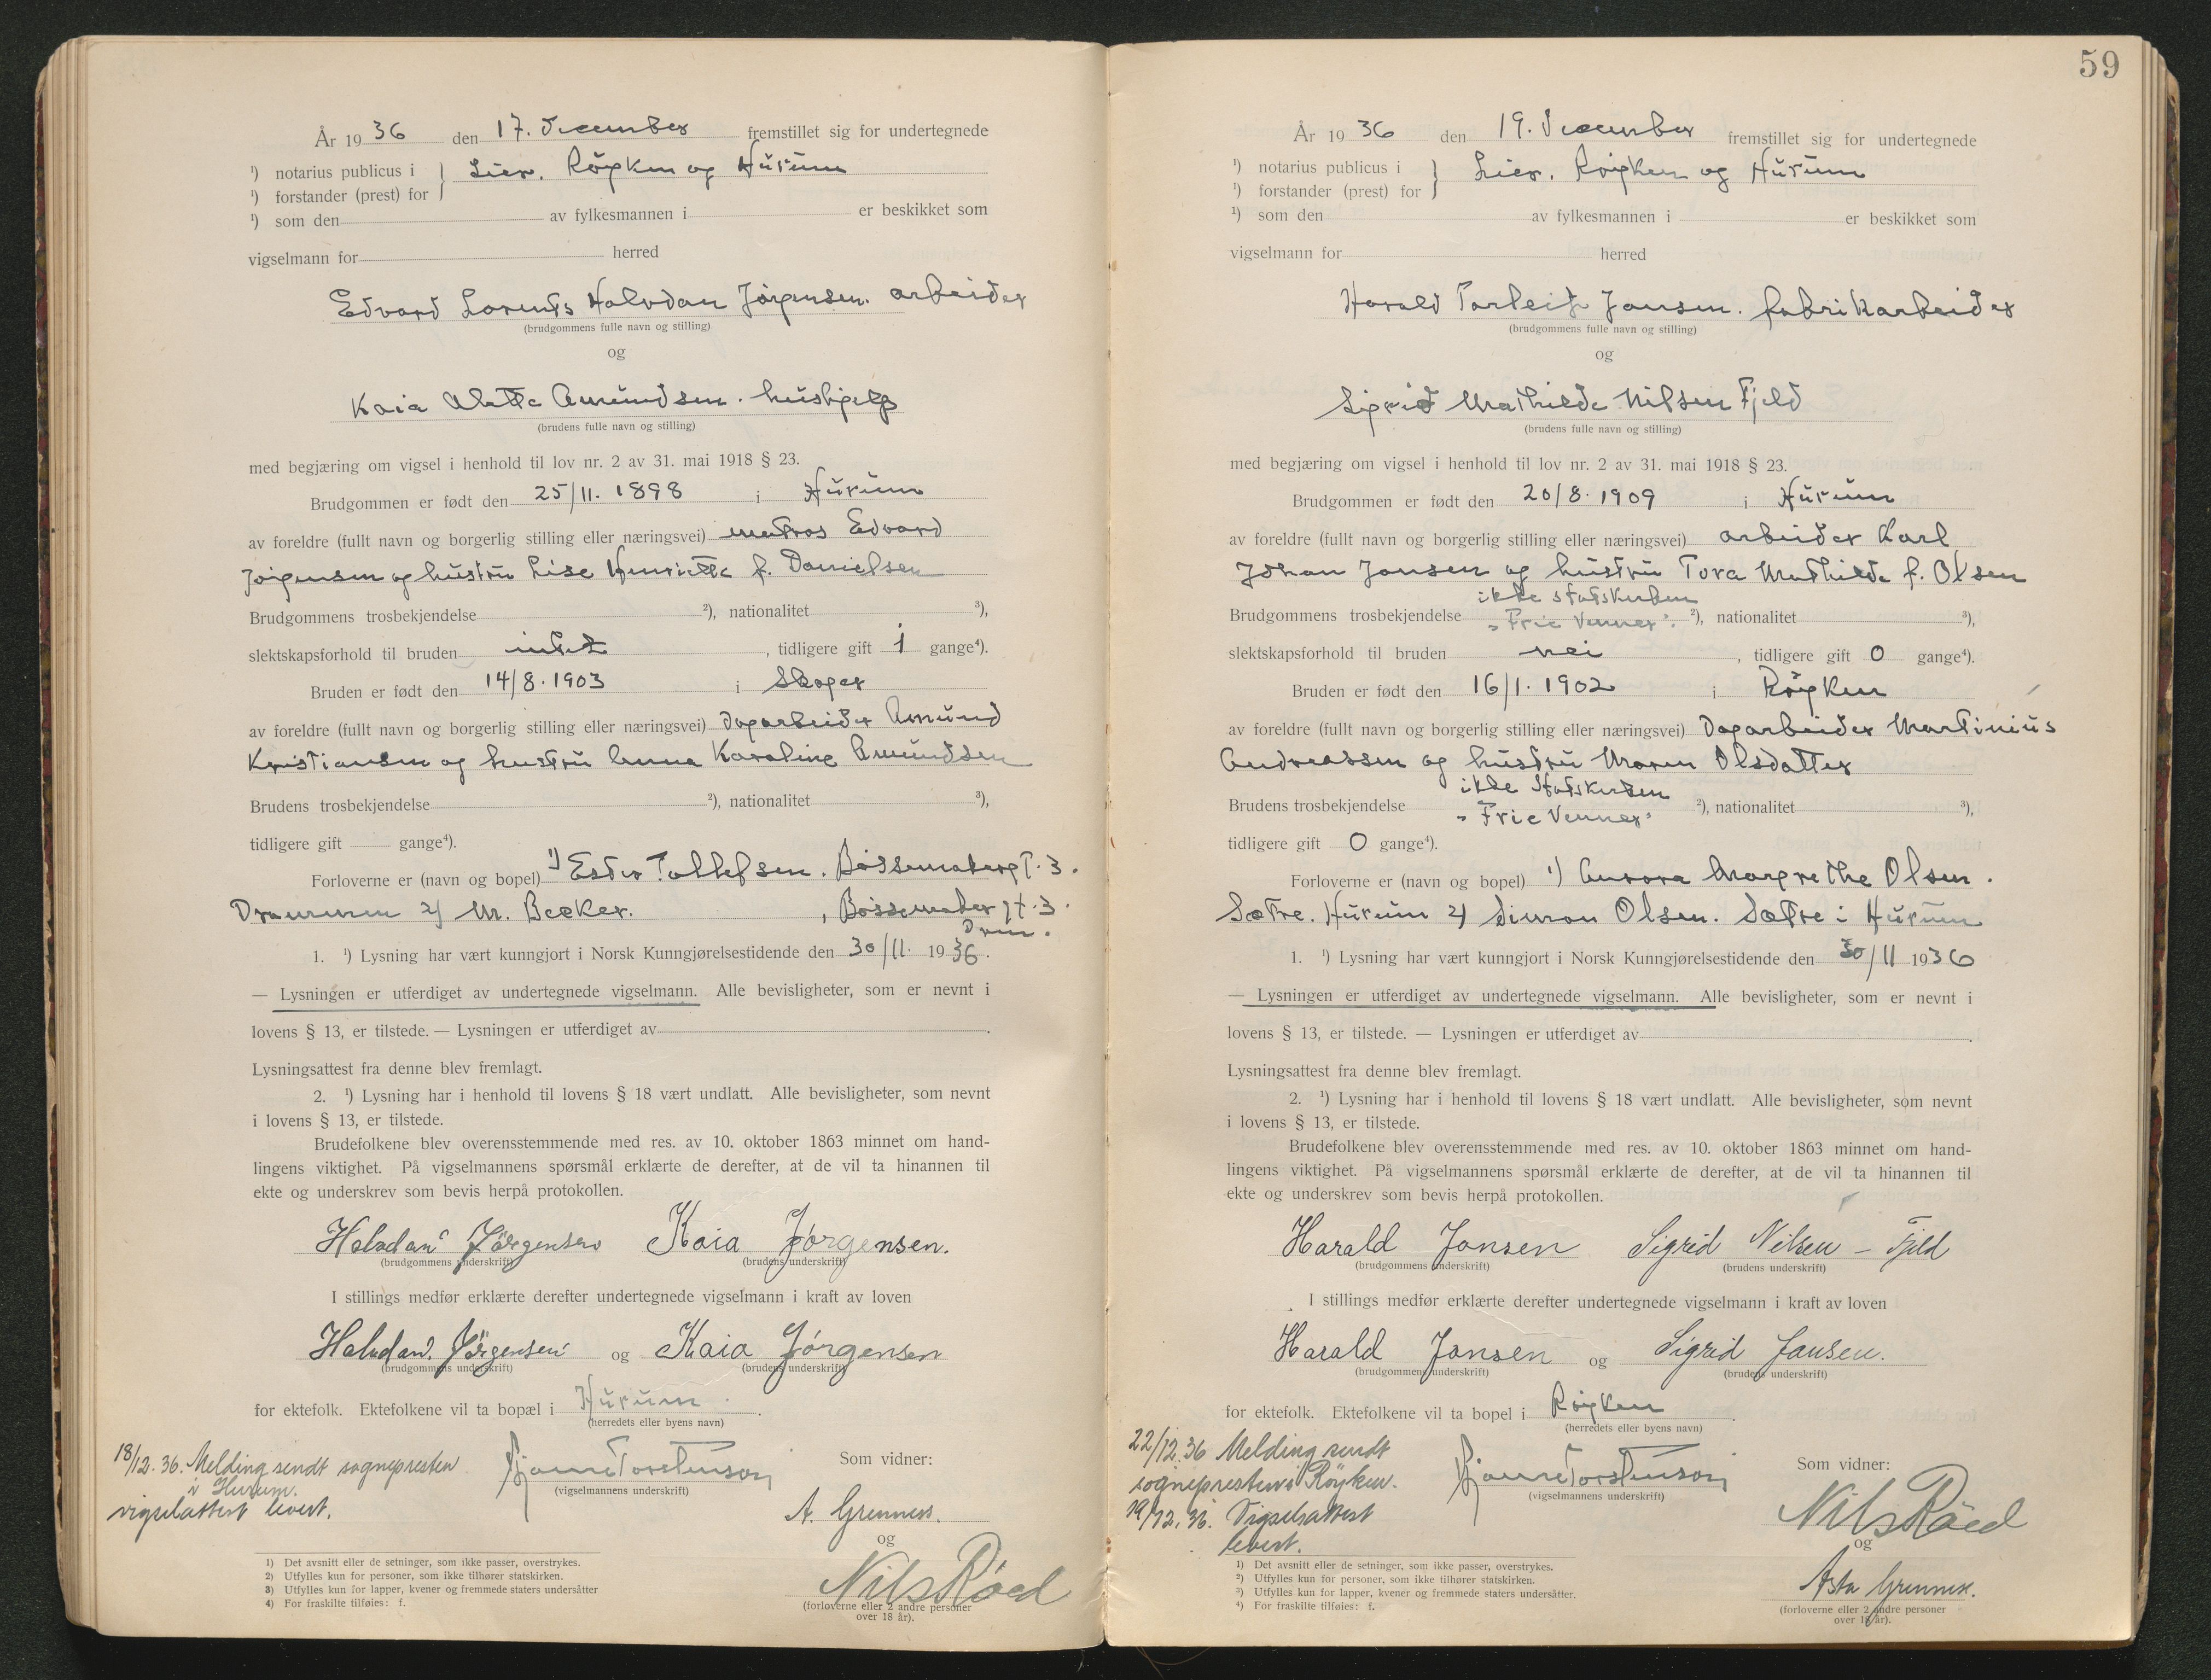 År 1936 den 17. December fremstillet sig for undertegnede
¹) notarius publicus i } Lier. Röyken og Hurum
¹) forstander (prest) for
¹) som den av fylkesmannen i er beskikket som
vigselmann for herred
Edvard Lorents Halvdan Jörgensen. arbeider
(brudgommens fulle navn og stilling)
og
Kaia Alette Amundsen. hushjelp
(brudens fulle navn og stilling)
med begjæring om vigsel i henhold til lov nr. 2 av 31. mai 1918 § 23.
Brudgommen er født den 25/11. 1898 i Hurum
av foreldre (fullt navn og borgerlig stilling eller næringsvei) matros Edvard
Jörgensen og hustru Lise Henriette f. Danielsen
Brudgommens trosbekjendelse ²), nationalitet ³),
slektskapsforhold til bruden intet, tidligere gift 1 gange⁴).
Bruden er født den 14/8. 1903 i Skoger
av foreldre (fullt navn og borgerlig stilling eller næringsvei) Dagarbeider Amund
Kristiansen og hustru Anna Karoline Amundsen
Brudens trosbekjendelse ²), nationalitet ³),
tidligere gift gange⁴).
Forloverne er (navn og bopel) 1) Ester Tollefsen. Bössemakergt. 3.
Drammen 2) M. Becker. , Bössemakergt. 3.
Drm.
1. ¹) Lysning har vært kunngjort i Norsk Kunngjørelsestidende den 30/11. 1936.
— Lysningen er utferdiget av undertegnede vigselmann. Alle bevisligheter, som er nevnt i
lovens § 13, er tilstede. — Lysningen er utferdiget av .
Lysningsattest fra denne blev fremlagt.
2. ¹) Lysning har i henhold til lovens § 18 vært undlatt. Alle bevisligheter, som nevnt
i lovens § 13, er tilstede.
Brudefolkene blev overensstemmende med res. av 10. oktober 1863 minnet om hand-
lingens viktighet. På vigselmannens spørsmål erklærte de derefter, at de vil ta hinannen til
ekte og underskrev som bevis herpå protokollen.
Halvdan Jørgensen Kaia Jørgensen.
(brudgommens underskrift) (brudens underskrift)
I stillings medfør erklærte derefter undertegnede vigselmann i kraft av loven
Halvdan Jørgensen og Kaia Jørgensen
(brudgommens underskrift) (brudens underskrift)
for ektefolk. Ektefolkene vil ta bopæl i Hurum.
(herredets eller byens navn)
18/12. 36. Melding sendt sognepresten
i Hurum.
vigselattest levert.
Bjarne Torstenson
(vigselmannens underskrift)
Som vidner:
A. Grenness.
og
Nils Röed
(forloverne eller 2 andre personer
over 18 år).
1) Det avsnitt eller de setninger, som ikke passer, overstrykes.
2) Utfylles kun for personer, som ikke tilhører statskirken.
3) Utfylles kun for lapper, kvener og fremmede staters undersåtter
4) For fraskilte tilføies: f.
59
År 1936 den 19. December fremstillet sig for undertegnede
¹) notarius publicus i } Lier. Röyken og Hurum
¹) forstander (prest) for
¹) som den av fylkesmannen i er beskikket som
vigselmann for herred
Harald Torleif Jansen. fabrikarbeider
(brudgommens fulle navn og stilling)
og
Sigrid Mathilde Nilsen Fjeld
(brudens fulle navn og stilling)
med begjæring om vigsel i henhold til lov nr. 2 av 31. mai 1918 § 23.
Brudgommen er født den 20/8. 1909 i Hurum
av foreldre (fullt navn og borgerlig stilling eller næringsvei) arbeider Karl
Johan Jansen og hustru Tora Mathilde f. Olsen
ikke statskirken
Brudgommens trosbekjendelse "Frie Venner". ²), nationalitet ³),
slektskapsforhold til bruden nei, tidligere gift 0 gange⁴).
Bruden er født den 16/1. 1902 i Röyken
av foreldre (fullt navn og borgerlig stilling eller næringsvei) Dagarbeider Martinius
Andreassen og hustru Maren Olsdatter
ikke Statskirken
Brudens trosbekjendelse "Frie Venner" ²), nationalitet ³),
tidligere gift 0 gange⁴).
Forloverne er (navn og bopel) 1) Aurora Margrethe Olsen.
Sætre. Hurum 2) Simon Olsen. Sætre i Hurum
1. ¹) Lysning har vært kunngjort i Norsk Kunngjørelsestidende den 30/11 1936
— Lysningen er utferdiget av undertegnede vigselmann. Alle bevisligheter, som er nevnt i
lovens § 13, er tilstede. — Lysningen er utferdiget av .
Lysningsattest fra denne blev fremlagt.
2. ¹) Lysning har i henhold til lovens § 18 vært undlatt. Alle bevisligheter, som nevnt
i lovens § 13, er tilstede.
Brudefolkene blev overensstemmende med res. av 10. oktober 1863 minnet om hand-
lingens viktighet. På vigselmannens spørsmål erklærte de derefter, at de vil ta hinannen til
ekte og underskrev som bevis herpå protokollen.
Harald Jansen Sigrid Nilsen - Fjeld
(brudgommens underskrift) (brudens underskrift)
I stillings medfør erklærte derefter undertegnede vigselmann i kraft av loven
Harald Jansen og Sigrid Jansen.
(brudgommens underskrift) (brudens underskrift)
for ektefolk. Ektefolkene vil ta bopel i Röyken.
(herredets eller byens navn)
22/12. 36 Melding sendt
sognepresten i Röyken.
19/12. 36. Vigselsattest
levert.
Bjarne Torstenson
(vigselmannens underskrift)
Som vidner:
Nils Röed
og
Asta Grenness.
(forloverne eller 2 andre personer
over 18 år).
1) Det avsnitt eller de setninger, som ikke passer, overstrykes.
2) Utfylles kun for personer, som ikke tilhører statskirken.
3) Utfylles kun for lapper, kvener og fremmede staters undersåtter.
4) For fraskilte tilføies: f.